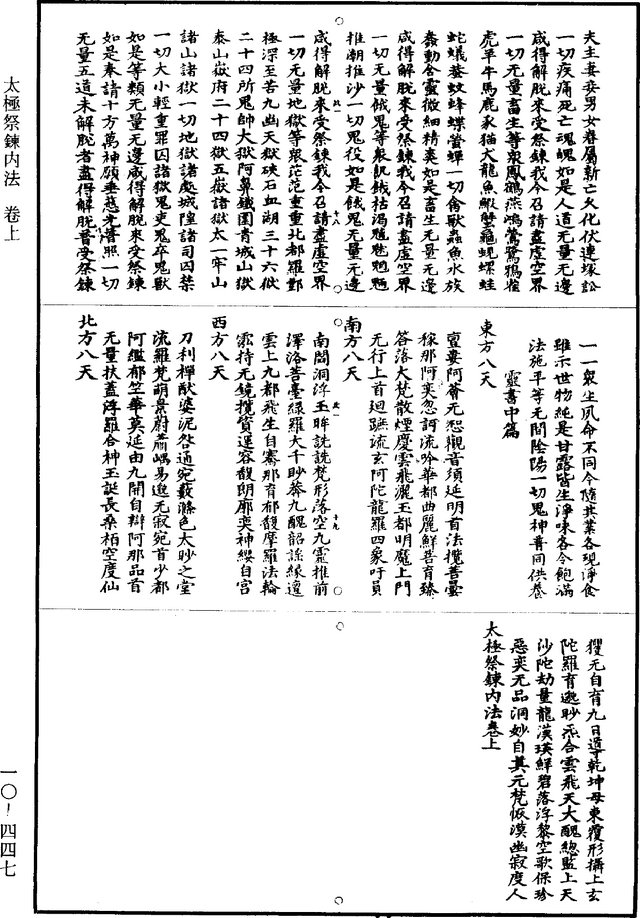 太極祭鍊內法 卷上
一〇—四四七
夫主妻妾男女眷屬新亡火化伏連塚訟
一切疾病死亡魂魄如是人道无量无邊
咸得解脫來受祭鍊我今召請盡虛空界
一切无量畜生等衆鳳鶴燕鴻鶯鷺鴉雀
虎羊牛馬鹿豕猫犬龍魚鰕蟹龜蜆螺蛙
蛇蟻蠶蚊蜂蝶螢蟬一切禽獸蟲魚水族
蠢動含靈微細精義如是畜生无量无邊
咸得解脫來受祭鍊我今召請盡虛空界
一切无量餓鬼等衆飢餓枯渴魑魅魍魎
推潮推沙一切鬼役如是餓鬼无量无邊
咸得解脫來受祭鍊我今召請盡虛空界
一切无量地獄等衆茫茫重重北都羅酆
極深至苦九幽天獄硤石血湖三十六獄
二十四所鬼師大獄阿鼻鐵圍青城山獄
泰山嶽府二十四獄五嶽諸獄太一牢山
諸山諸獄一切地獄諸處城隍諸司囚禁
一切大小輕重罪囚諸獄鬼吏鬼卒鬼獸
如是等類无量无邊咸得解脫來受祭鍊
如是奉請十方萬神願垂慈光普照一切
无量五道未解脫者盡得解脫普受祭鍊
一一衆生夙命不同今隨其業各現淨食
雖示世物純是甘露皆生淨味各令飽滿
法施平等无問陰陽一切鬼神普同供養
靈書中篇
東方八天
亶婁阿薈无惒觀音須延明首法攬菩曇
稼那阿奕忽訶流吟華都曲麗鮮菩育臻
答落大梵散煙慶雲飛灑玉都明魔上門
无行上首迴蹠流玄阿陀龍羅四象吁員
南方八天
南閻洞浮玉眸詵詵梵形落空九靈推前
澤洛菩臺綠羅大千眇莽九醜韶謠緣邅
雲上九都飛生自騫那育郁馥摩羅法輪
霐持无鏡攬資運容馥朗廓奕神纓自宮
西方八天
刀利禪猷婆泥咎通宛藪滌色太眇之堂
流羅梵萌景蔚蕭嵎易邈无寂宛首少都
阿䍯郁竺華莫延由九開自辯阿那品首
无量扶蓋浮羅合神玉誕長桑栢空度仙
北方八天
玃无自育九日導乾坤母東覆形攝上玄
陀羅育邈眇炁合雲飛天大醜總監上天
沙陀劫量龍漢瑛鮮碧落浮黎空歌保珍
惡奕无品洞妙自真元梵恢漠幽寂度人
太極祭鍊內法卷上